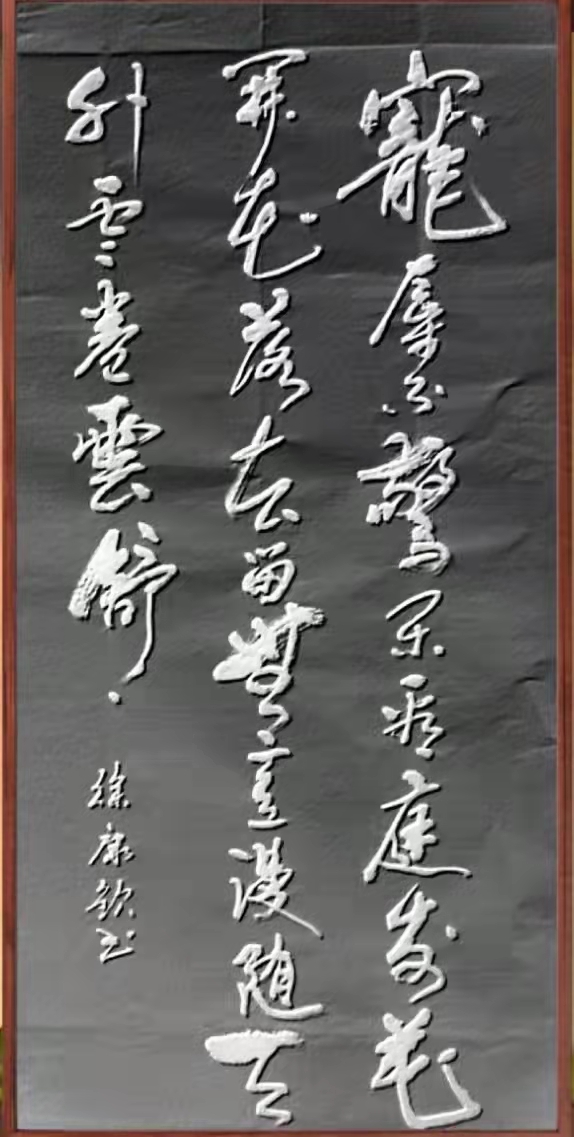 寵辱不驚闲看庭前花
開花落去留無意漫随天
外雲卷雲舒
徐康钦书